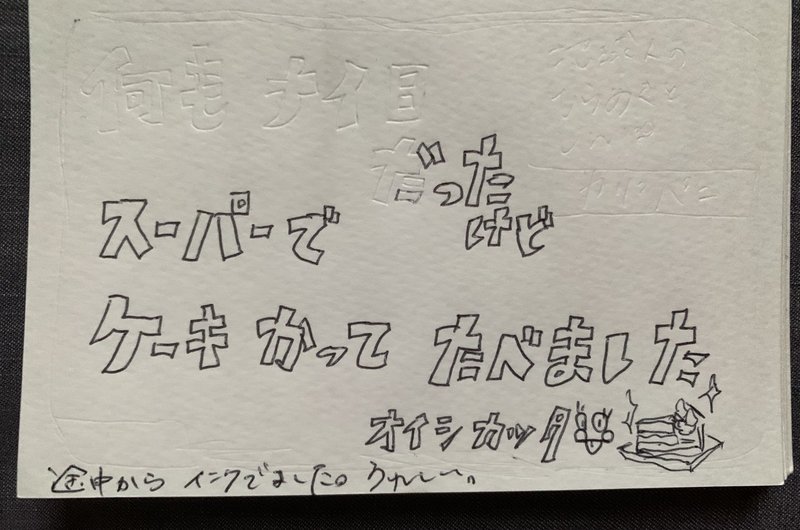 何も ナイ日
だった
けど
スーパーで
ケーキ かって たべました
オイシカッタ
途中から インクでました。うれしい。